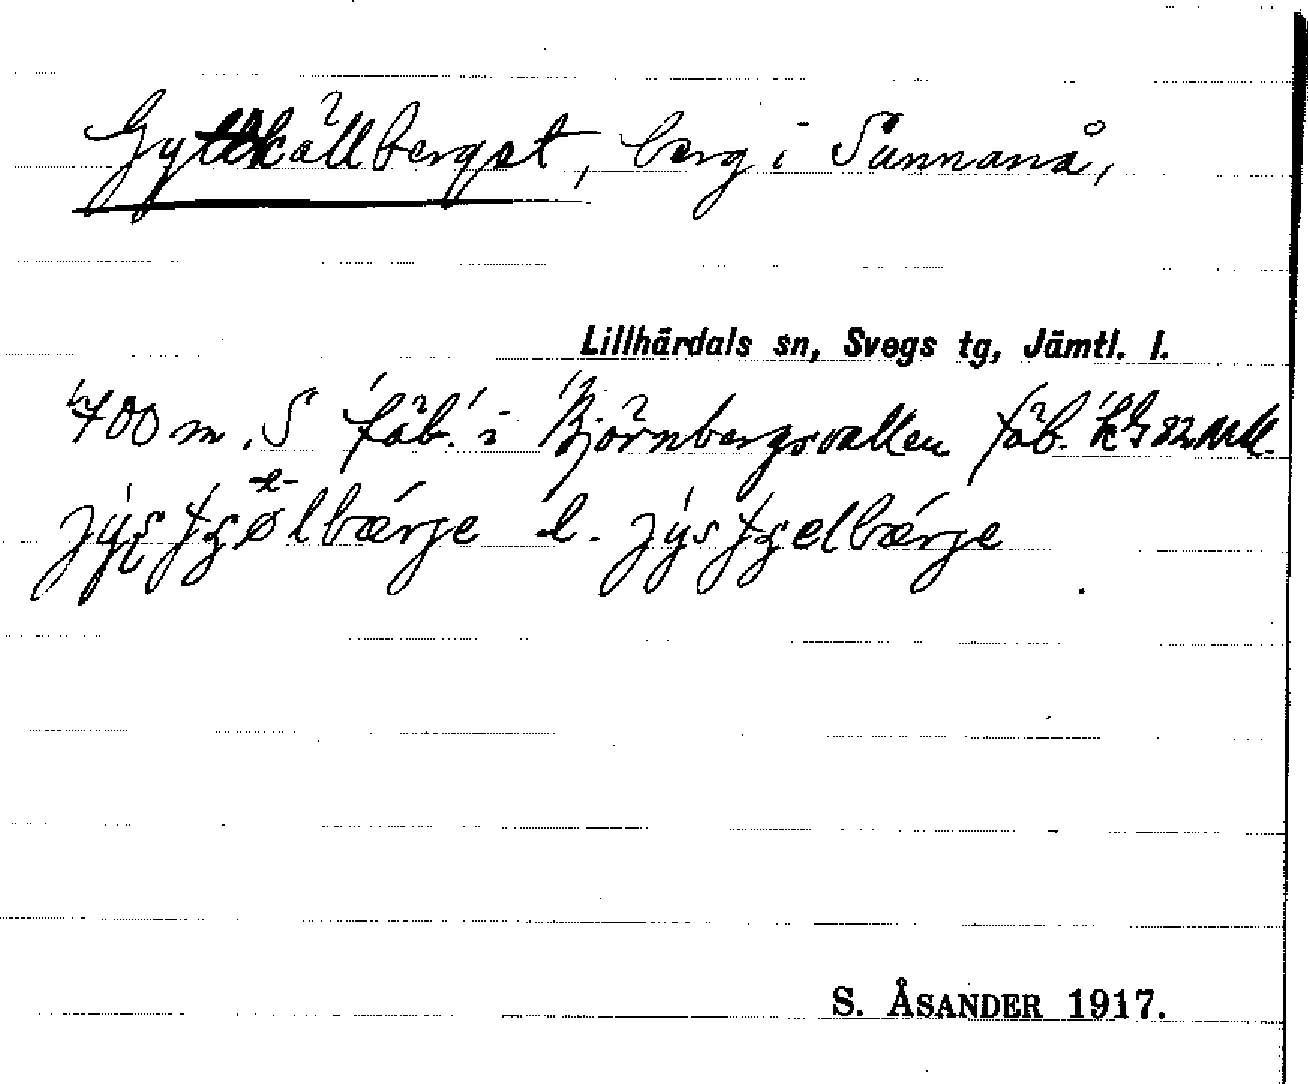 Gyttkällberget, berg i Sunnanå,
Lillhärdals sn, Svegs tg, Jämtl. l.
400 m. S "fäb." i Björnbergsvallen fäb.
l. jýsʃʒelbærje
S. ÅSANDER 1917.